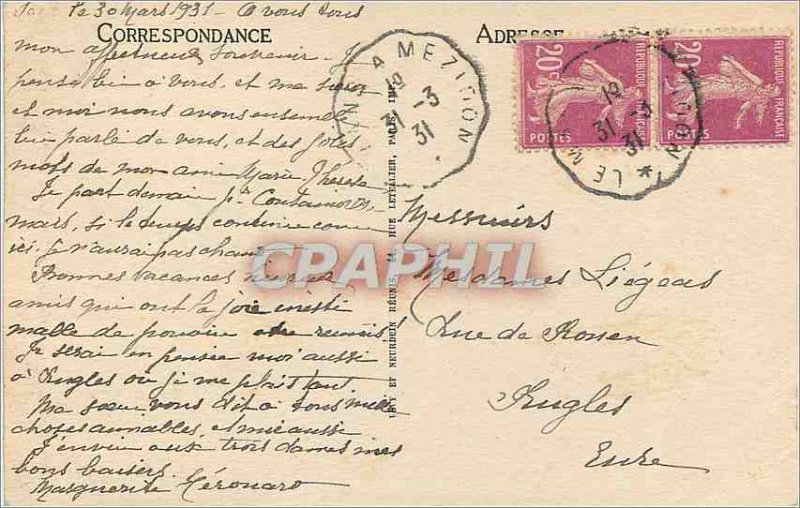 le 30 Mars 1931 - A vous tous
CORRESPONDANCE
ADRESSE
mon affectueux souvenir - Je
pense bien à vous, et ma sœur
et moi nous avons ensemble
bien parlé de vous, et des jolis
mots de mon amie Marie Thérèse
Je part demain pr
mars, si le temps continue comme
ici, je n'aurai pas chaud
Bonnes vacances heureux
amis qui ont la joie inesti
mable de pouvoir être réunis
Je serai en pensée moi aussi
à Rugles où je me plais tant
Ma sœur vous dit à tous mille
choses aimables et moi aussi
J'envoie aux trois dames mes
bons baisers
Marguerite Hérouard
A MEZIDON
19
31 - 3
31
20c
REPUBLIQUE FRANÇAISE
POSTES
20c
REPUBLIQUE FRANÇAISE
POSTES
19
31 3
31
* LE M
LEVY ET NEURDEIN RÉUNIS, 44, RUE LETELLIER, PARIS. IMP.
CPARPHIL
Messieurs
Mesdames Liégeas
Rue de Rouen
Rugles
Eure